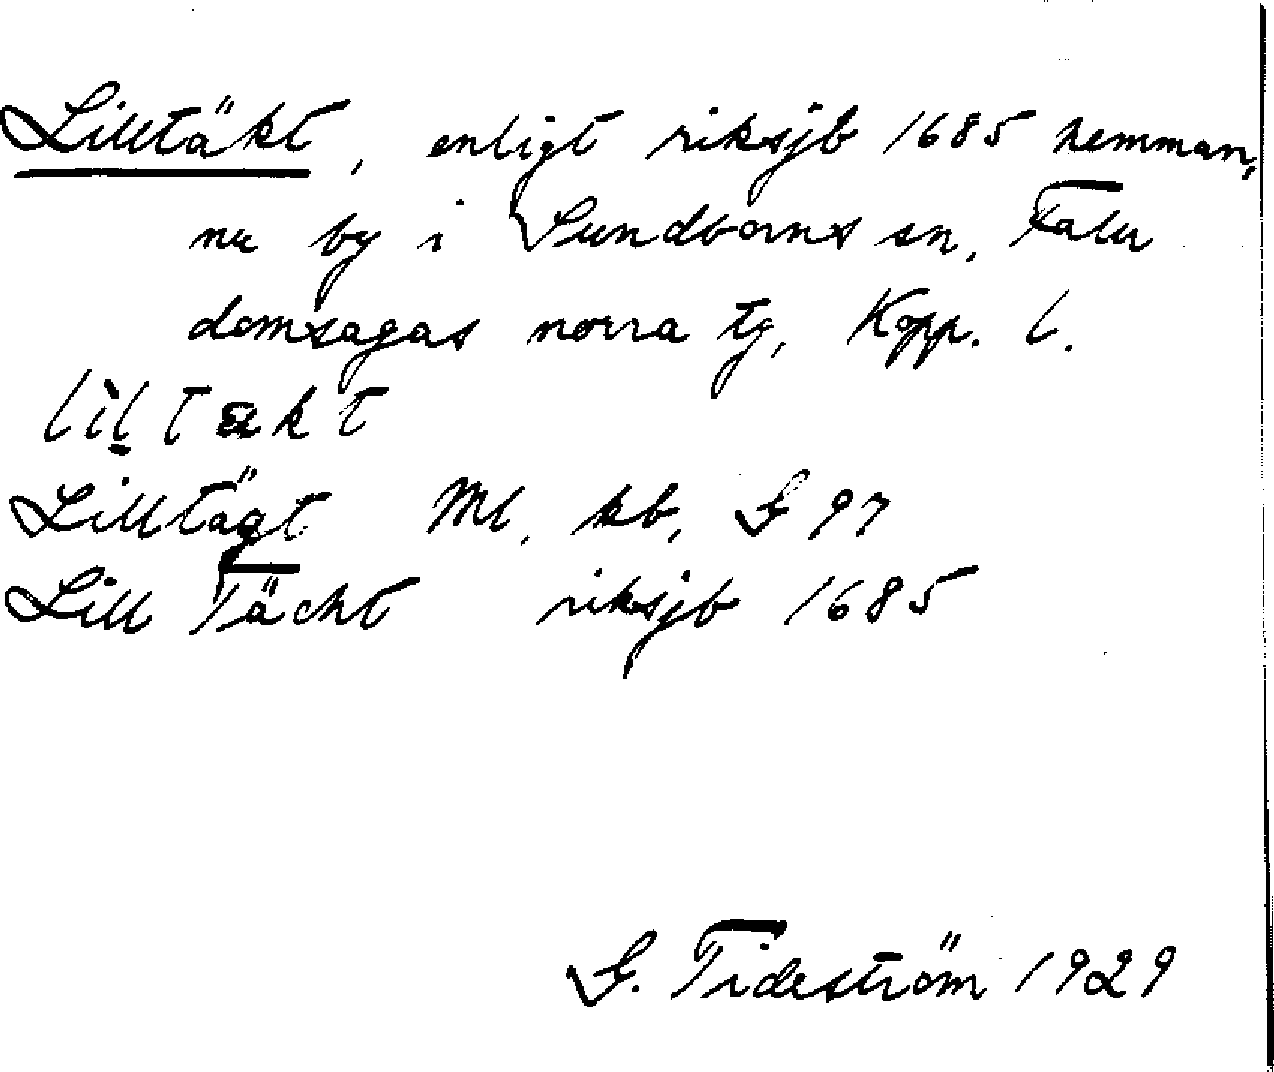 Lilltäkt, enligt riksjb 1685 hemman,
nu by i Sundborns sn, Falu
domsagas norra tg, Kopp. l.
lìl tækt
Lilltägt Ml, kb, G 97
Lill Tächt riksjb 1685
G. Tideström 1929